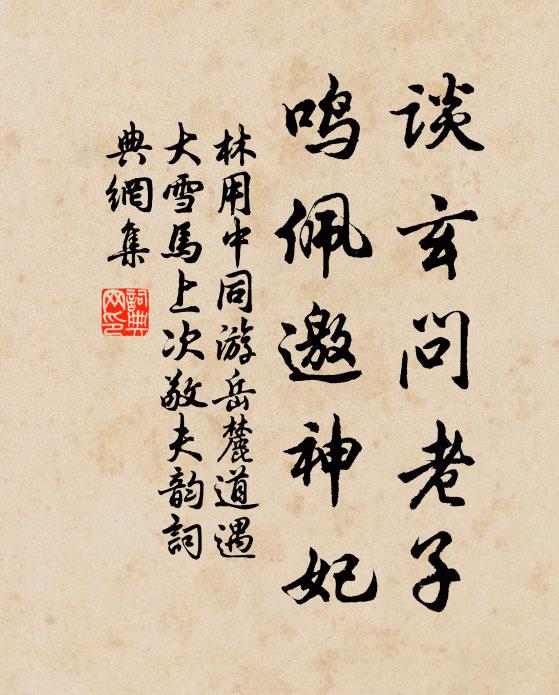 谈玄问老子
鸣佩邀神妃
林用中同游岳麓道遇
大雪馬上次敬夫韵詞
典網集
詞典網印